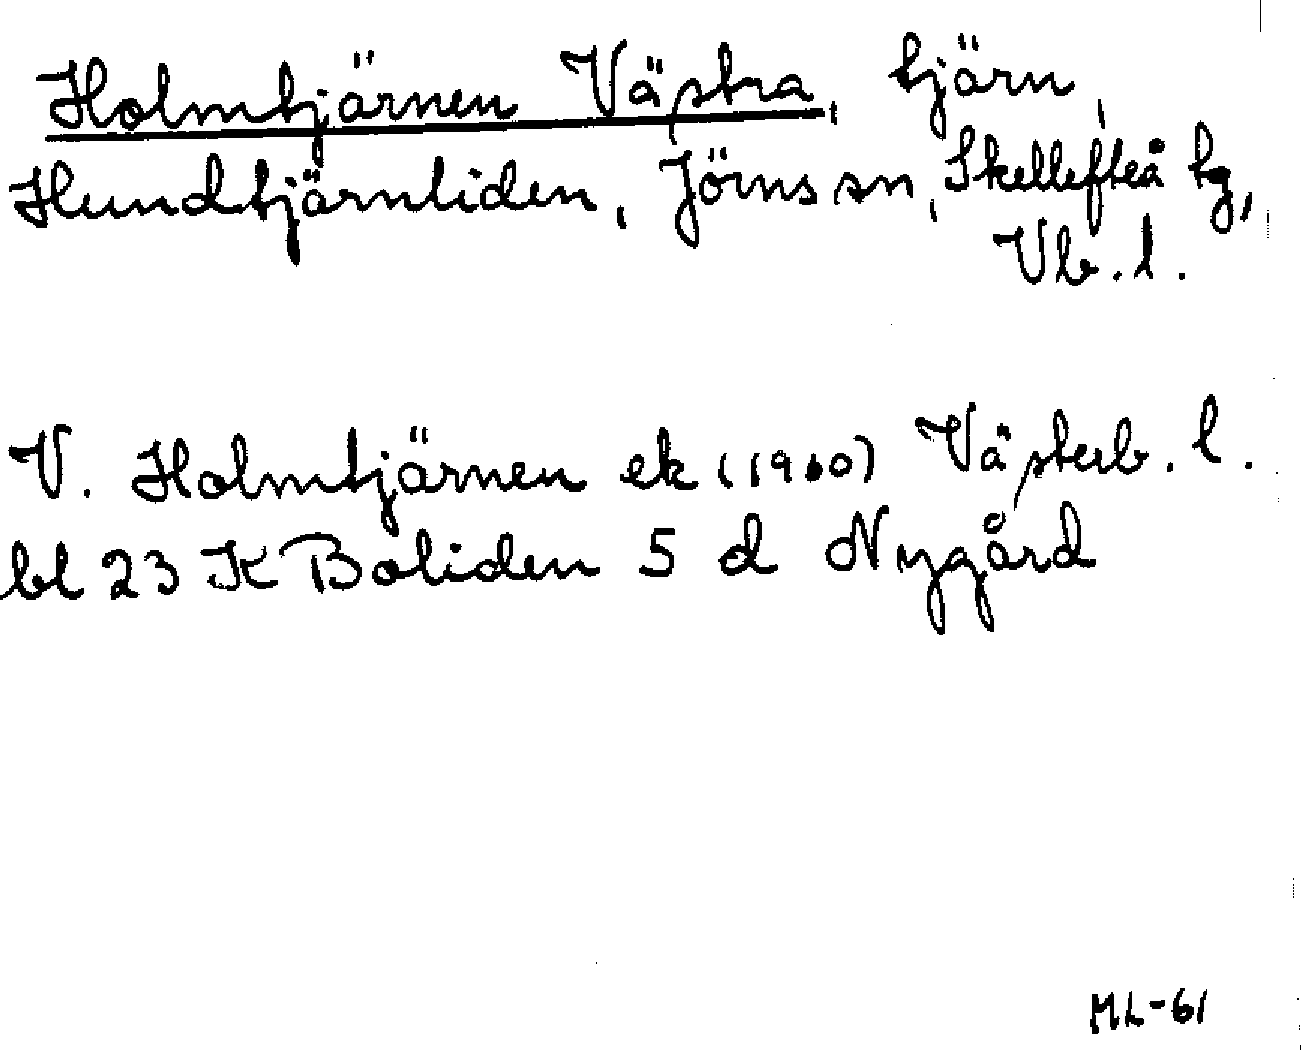 Holmtjärnen Västra, tjärn,
Hundtjärnliden, Jörns sn, Skellefteå tg,
Vb.l.
V. Holmtjärnen ek (1960) Västerb. l.
bl 23 K Boliden 5 d Nygård
ML-61